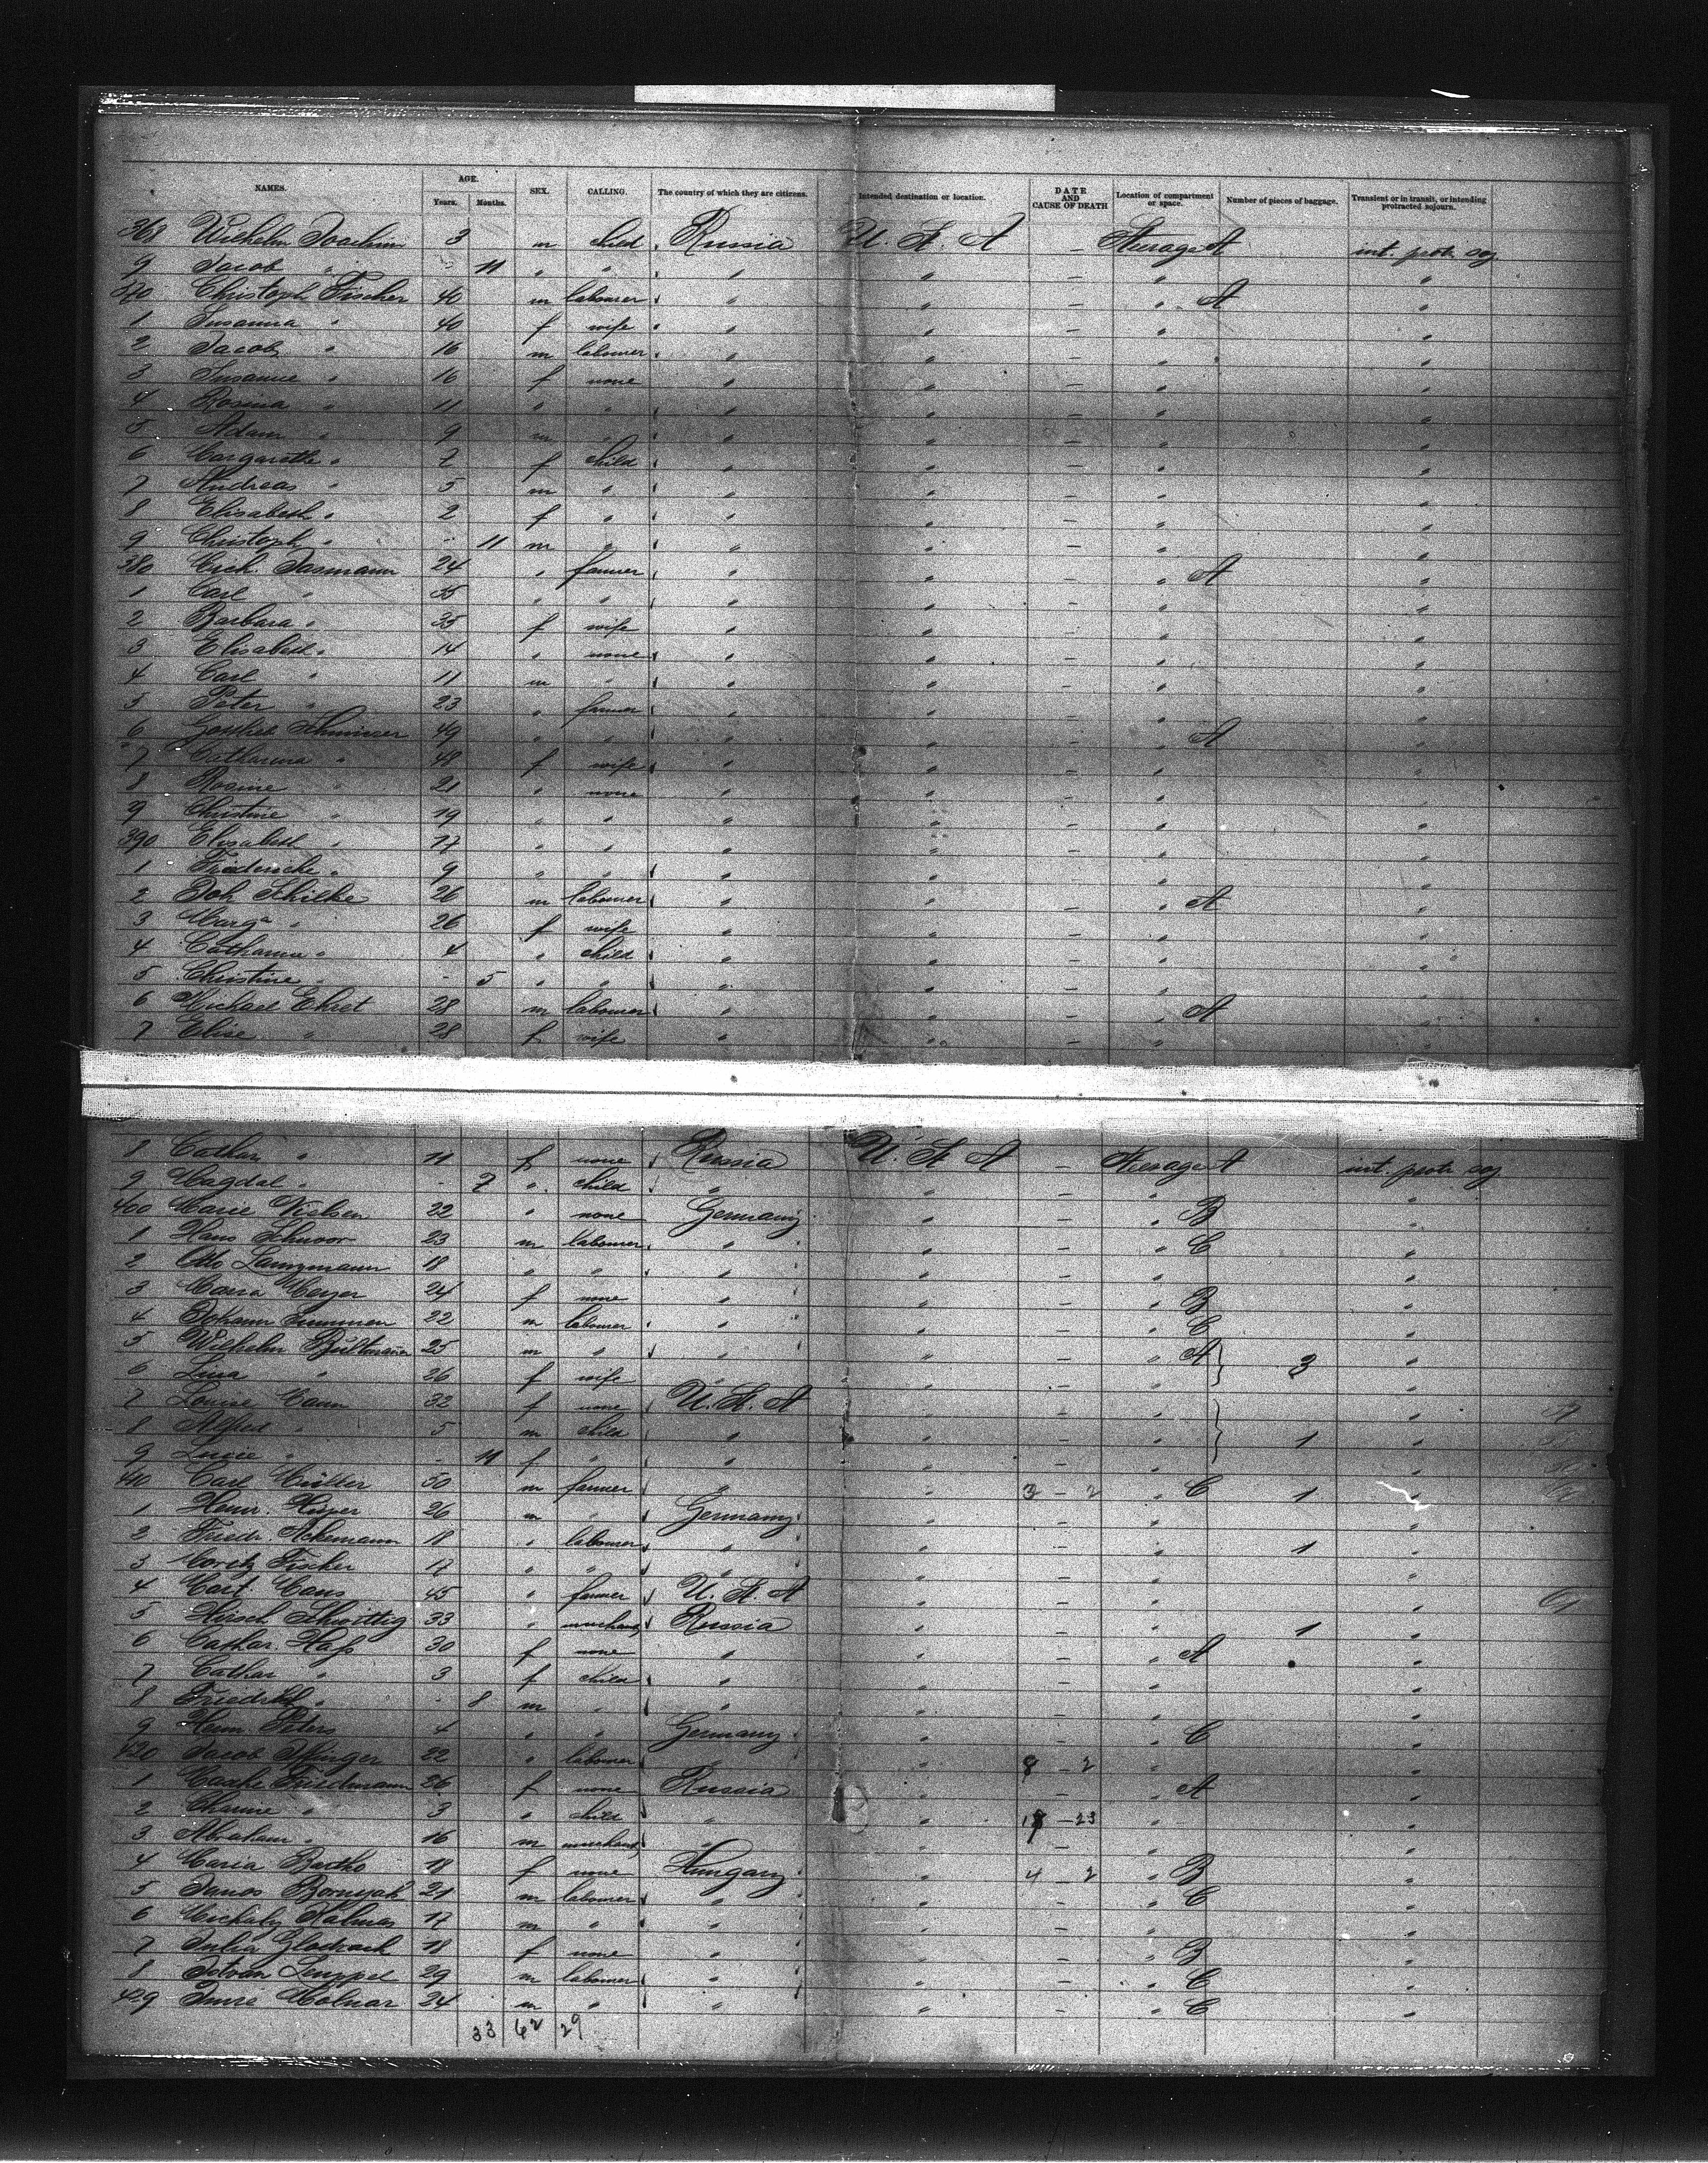 NAMES. AGE. SEX. CALLING. The country of which they are citizens. Intended destination or location. DATE AND CAUSE OF DEATH Location of compartment or space. Number of pieces of baggage. Transient or in transit, or intending protracted sojourn.
Years. Months.
368 Wilhelm Joachim 3 m child Russia U. St. A — Steerage A int. protr. soj.
9 Jacob " - 11 " " " " — " "
370 Christoph Fischer 40 m labourer " " — " A "
1 Susanna " 40 f wife " " — " "
2 Jacob " 16 m labourer " " — " "
3 Susanne " 16 f none " " — " "
4 Rosina " 11 " " " " — " "
5 Adam " 9 m " " " — " "
6 Margarethe " 7 f child " " — " "
7 Andreas " 5 m " " " — " "
8 Elisabeth " 2 f " " " — " "
9 Christoph " - 11 m " " " — " "
380 Mich. Jasmann 24 " farmer " " — " A "
1 Carl " 35 " " " " — " "
2 Barbara " 35 f wife " " — " "
3 Elisabeth " 14 " none " " — " "
4 Carl " 11 m " " " — " "
5 Peter " 23 " farmer " " — " "
6 Gottlieb 49 " " " " — " A "
7 Catharina " 48 f wife " " — " "
8 Rosine " 21 " none " " — " "
9 Christine " 19 " " " " — " "
390 Elisabeth " 17 " " " " — " "
1 Friedericke " 9 " " " " — " "
2 Joh Schilke 26 m labourer " " — " A "
3 Marga " 26 f wife " " — " "
4 Catharina " 4 " child " " — " "
5 Christine " - 5 " " " " — " "
6 Michael Ehret 28 m labourer " " — " A "
7 Elise " 28 f wife " " — " "
8 Cathar " 11 f none Russia U. St. A — Steerage A int. protr. soj
9 Magdal " - 7 " child " " — " "
400 Marie Nielsen 22 " none Germany " — " B "
1 Hans Schnoor 23 m labourer " " — " C "
2 Otto Lanzmann 18 " " " " — " "
3 Maria Meyer 24 f none " " — " B "
4 Johann 22 m labourer " " — " C "
5 Wilhelm Bültmann 25 m " " " — " A 3 "
6 Lina " 26 f wife " " — " "
7 Louise Mann 32 f none U. St. A " — " "
8 Alfred " 5 m child " " — " 1 "
9 Lucie " - 11 f " " " — " "
410 Carl 50 m farmer " " 3 — 2 " C 1 "
1 Heinr. 26 m " Germany " — " "
2 Friedr. 18 " labourer " " — " 1 "
3 Moretz Fischer 17 " " " " — " "
4 45 " farmer U. St. A " — " "
5 Hirsch 33 " merchant Russia " — " 1 "
6 Cathar. Hass 30 f none " " — " A "
7 Cathar " 3 f child " " — " "
8 Friedrich " - 8 m " " " — " "
9 Heinr. Peters 4 " " Germany " — " C "
420 Jacob 22 " labourer " " 8 — 2 " "
1 Friedmann 26 f none Russia " — " A "
2 " 3 " child " " 18 — 23 " "
3 Abraham " 16 m merchant " " — " "
4 Maria Bartko 18 f none Hungary " 4 — 2 " B "
5 Janos 21 m labourer " " — " C "
6 Michaly Kalmas 17 m " " " — " "
7 Julia 18 f none " " — " B "
8 Istvan 29 m labourer " " — " C "
429 Imre Molnar 24 m " " " — " C "
33 62 29